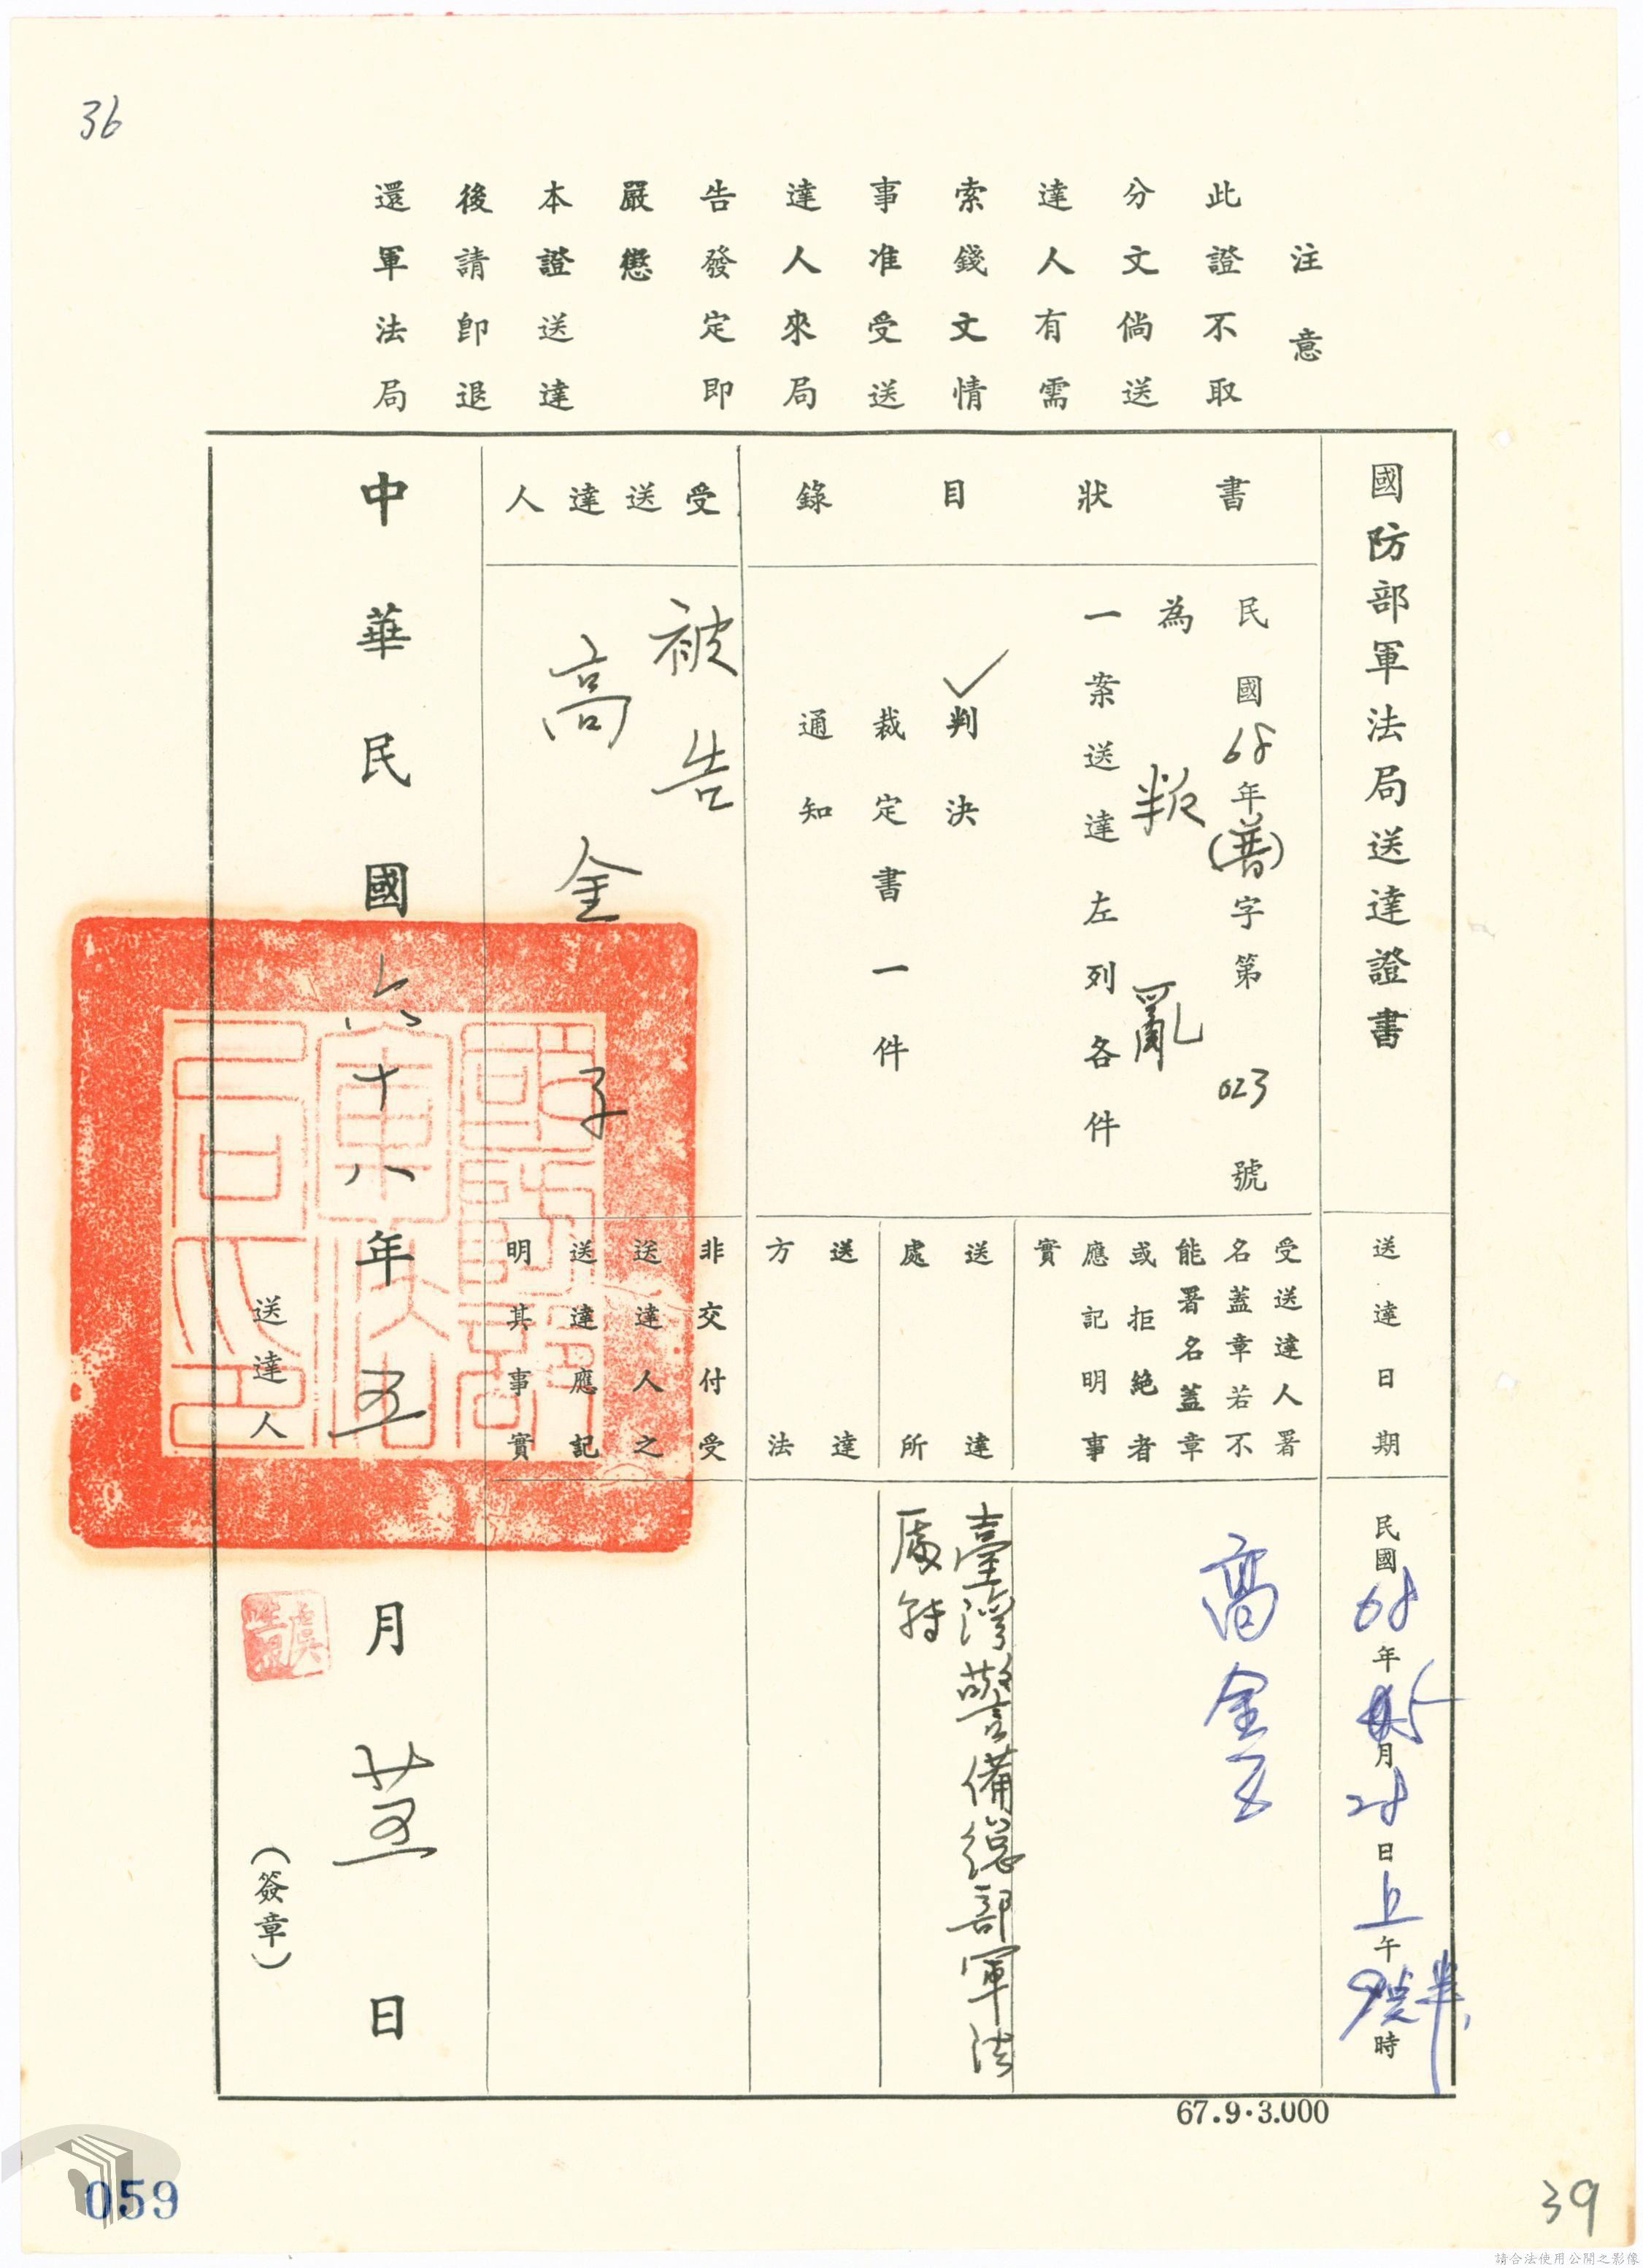 36
注意
此證不取
分文倘送
達人有需
索錢文情
事准受送
達人來局
告發定即
嚴懲
本證送達
後請即退
還軍法局
國防部軍法局送達證書
書狀目錄
民國68年(普)字第023號
為叛亂
一案送達左列各件
✓判決
裁定書一件
通知
受送達人
被告
高金子
送達日期
民國68年5月28日上午9時半
受送達人署
名蓋章若不
能署名蓋章
或拒絕者
應記明事
實
高金子
送達
處所
臺灣警備總部軍法
處
送達
方法
非交付受
送達人之
送達應記
明其事實
中華民國六十八年五月廿五日
國防部
軍法
局印
送達人
(簽章)
67.9.3.000
059
39
請合法使用公開之影像